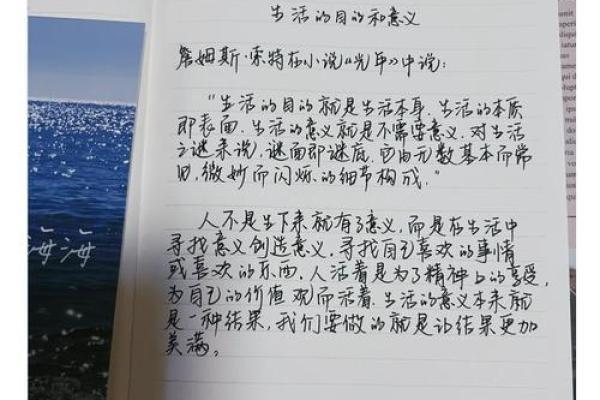 生活的目的和意义
詹姆斯·索特在小说《光年》中说:
"生活的目的就是生活本身.生活的本质
即表面.生活的意义就是不需要意义.对生活
之谜来说,谜面即谜底.它由无数基本而常
旧,微妙而闪烁的细节构成."
人不是生下来就有了意义,而是在生活中
寻找意义创造意义,寻找自己喜欢的事情
或喜欢的东西.人活着是为了精神上的享受,
为自己的价值观而活着.生活的意义本来就
是一种结果,我们要做的就是让结果更加
美满。
海海